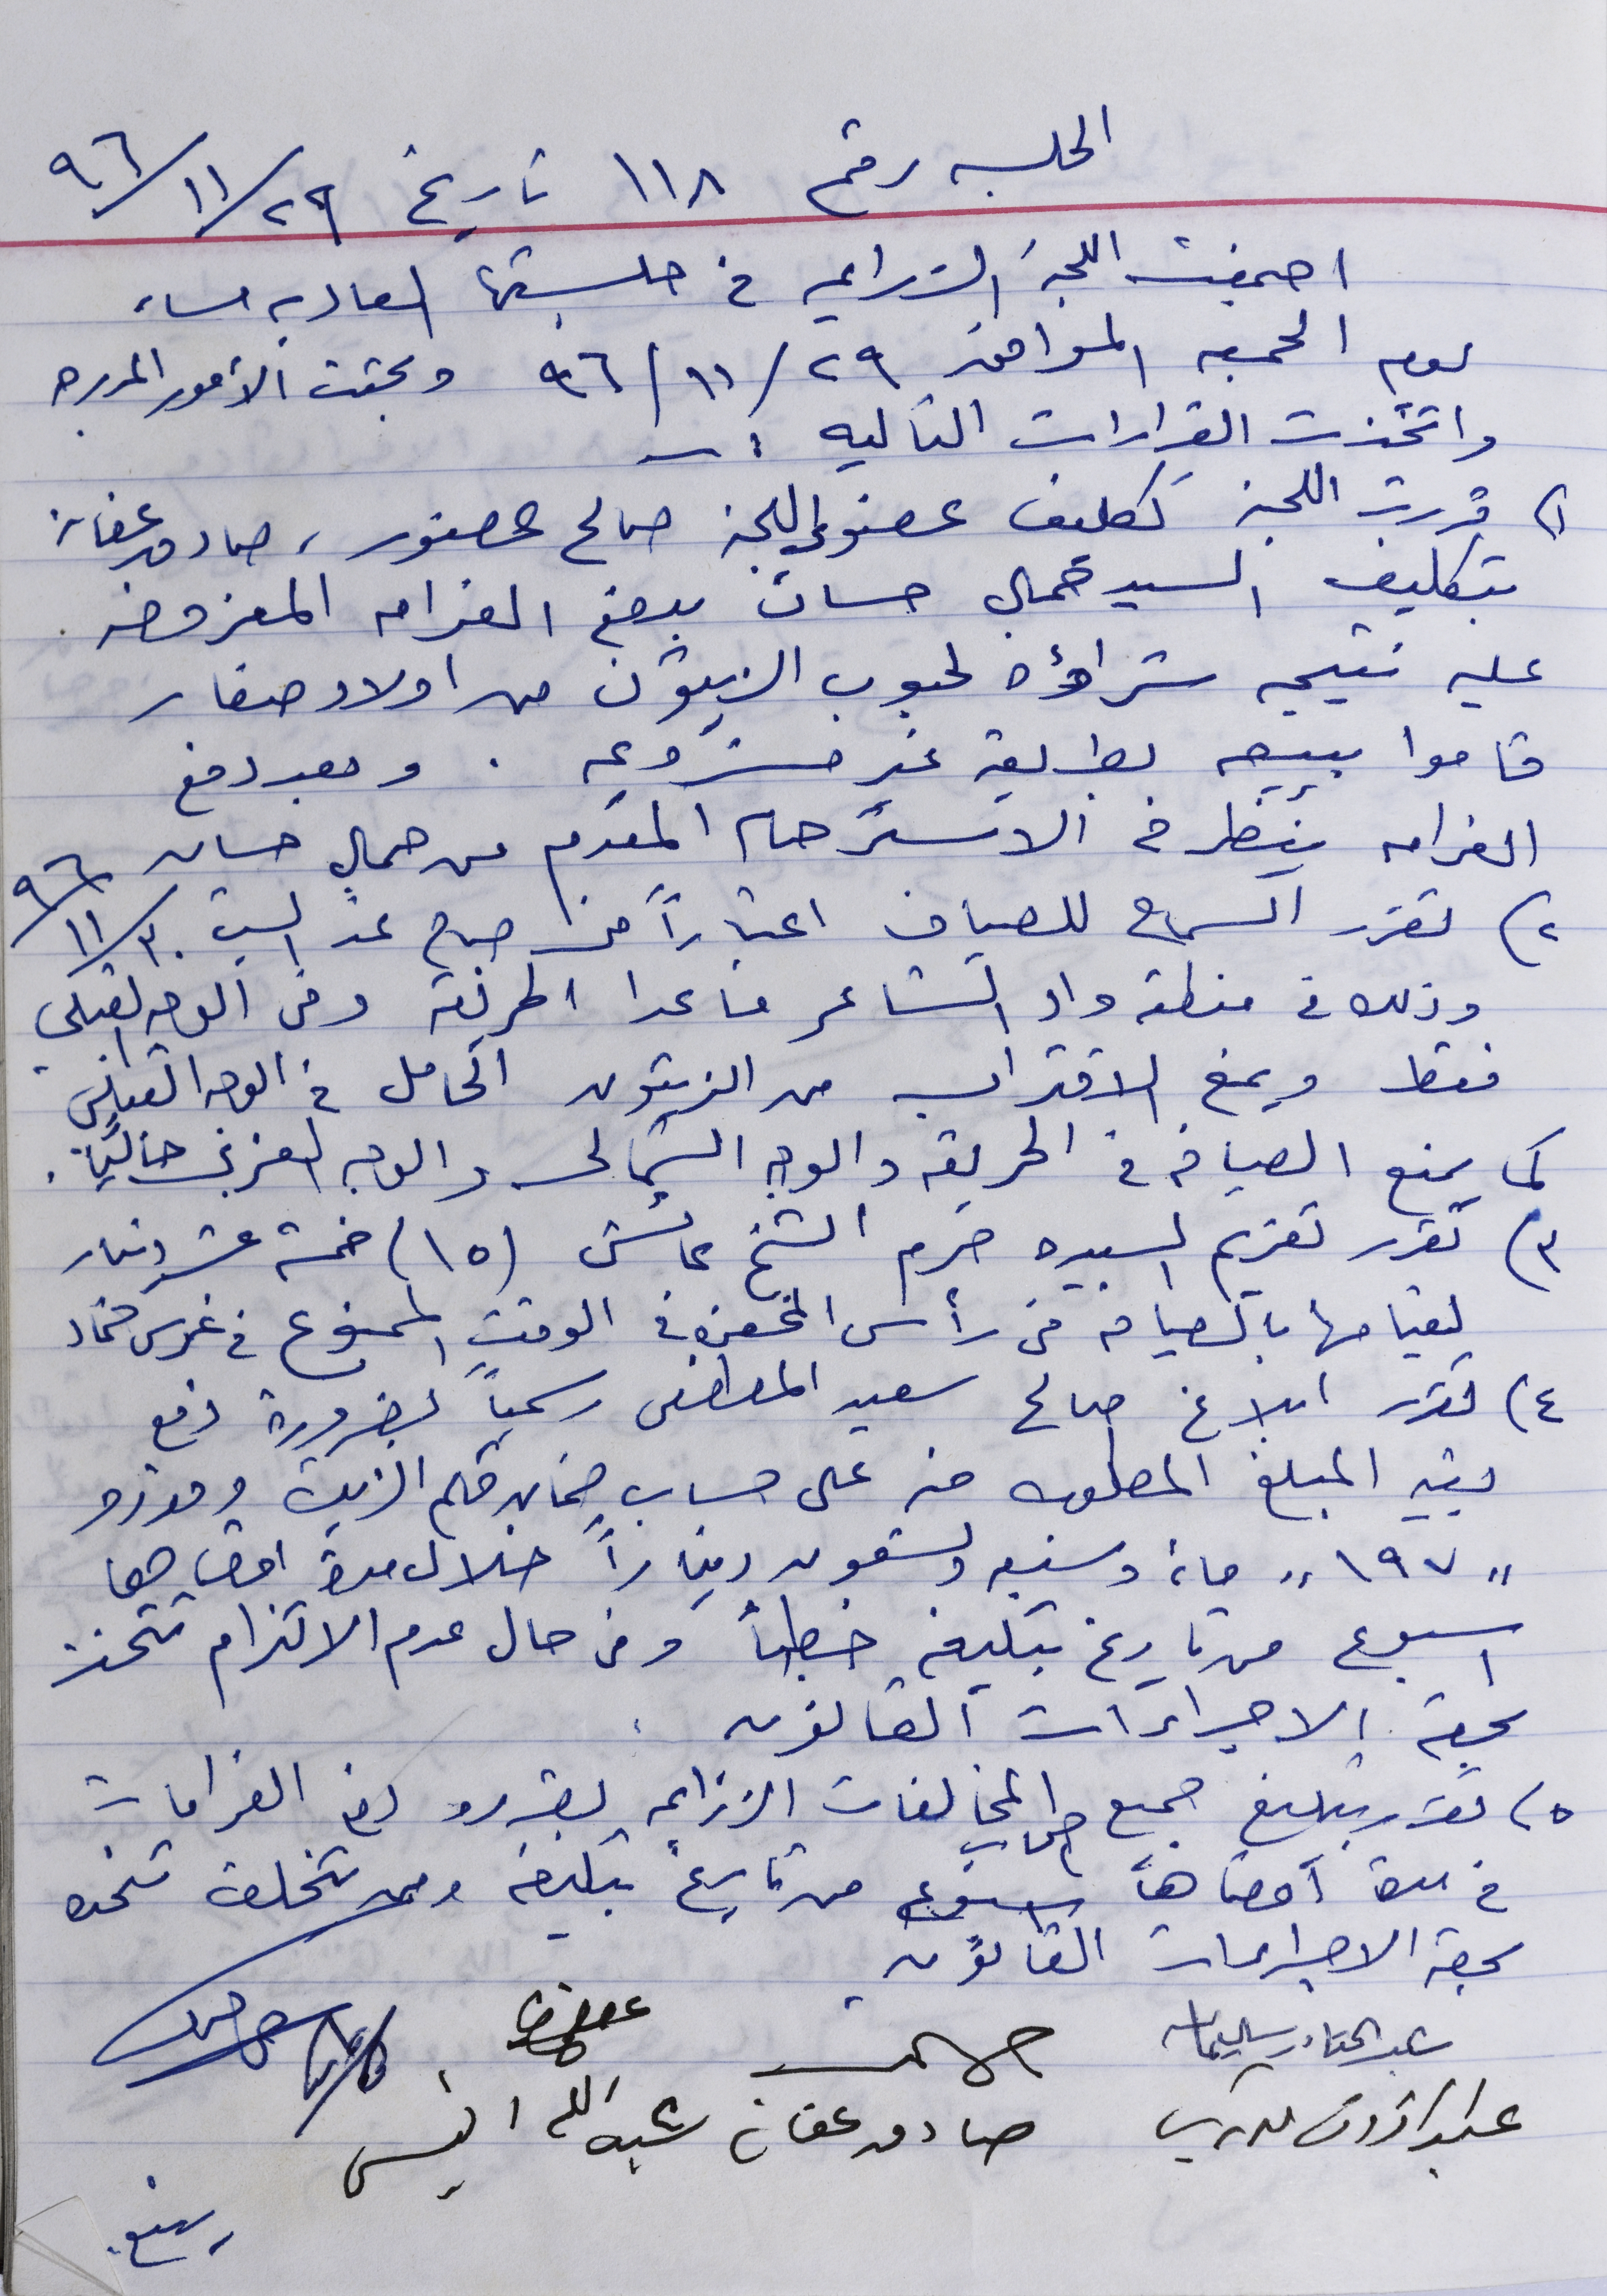 الجلسه رقم ١١٨ تاريخ ٢٩/١١/٩٦
اجتمعت اللجنة الزراعيه في جلستها العاديه مساء
يوم الجمعه الموافق ٢٩/١١/٩٦ وبحثت الأمور المدرجه
واتخذت القرارات التاليه :ـ
١) قررت اللجنة تكليف عضوي اللجنة صالح عصفور ، صادق عفانة
بتكليف السيد جمال حسان بدفع الغرامه المفروضه .
عليه نتيجه شراؤه لحبوب الزيتون من اولاد صغار
قاموا ببيعه بطريقة غير مشروعه . وبعد دفع
الغرامه ينظر في الاسترحام المقدم من جمال حسان
٢) تقرر السماح للصياف اعتباراً من صباح غد السبت ٣٠/١١/٩٦
وذلك في منطقة واد الشاعر ما عدا الحريقة وفي الوجه القبلي
فقط ويمنع الاقتراب من الزيتون الحامل في الوجه القبلي
كما يمنع الصيافه في الحريقه والوجه الشمالي والوجه الغربي حالياً .
٣) تقرر تغريم السيده حرم الشيخ عائش (١٥) خمسة عشر دينار
لقيامها بالصيافه في رأس في الوقت الممنوع في غرس
٤) تقرر ابلاغ صالح سعيد رسمياً بضرورة دفع
بقيه المبلغ المطلوب منه على حساب ضمان الزيت وقدره
" ١٩٧ " ماية وسبعه وتسعون ديناراً خلال مدة اقصاها
اسبوع من تاريخ تبليغه خطياً وفي حال عدم الالتزام تتخذ
بحقه الاجراءات القانونيه .
٥) تقرر تبليغ جميع اصحاب المخالفات الزراعيه بضروره دفع الغرامات
في مدة أقصاها اسبوع من تاريخ تبليغه ومن تخلف تتخذ
بحقه الاجراءات القانونيه
عبد القادر سليمان
صادق عفانة عبد الله انيس
ربيع